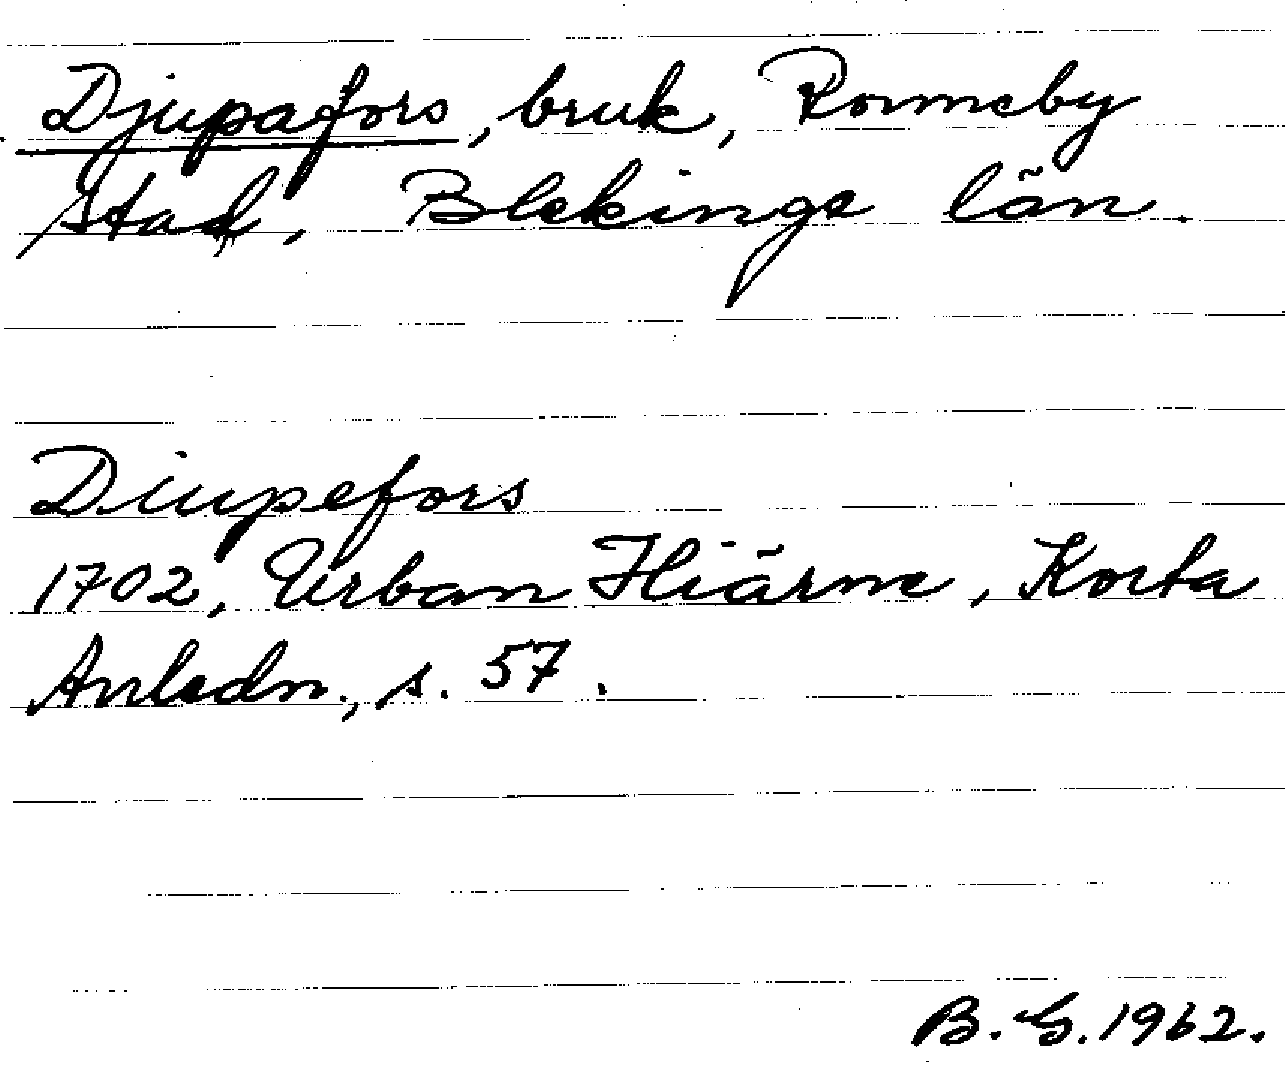 Djupafors, bruk, Ronneby
stad, Blekinge län.
Diupefors
1702, Urban Hiärne, Korta
Anledn., s. 57.
B. G. 1962.